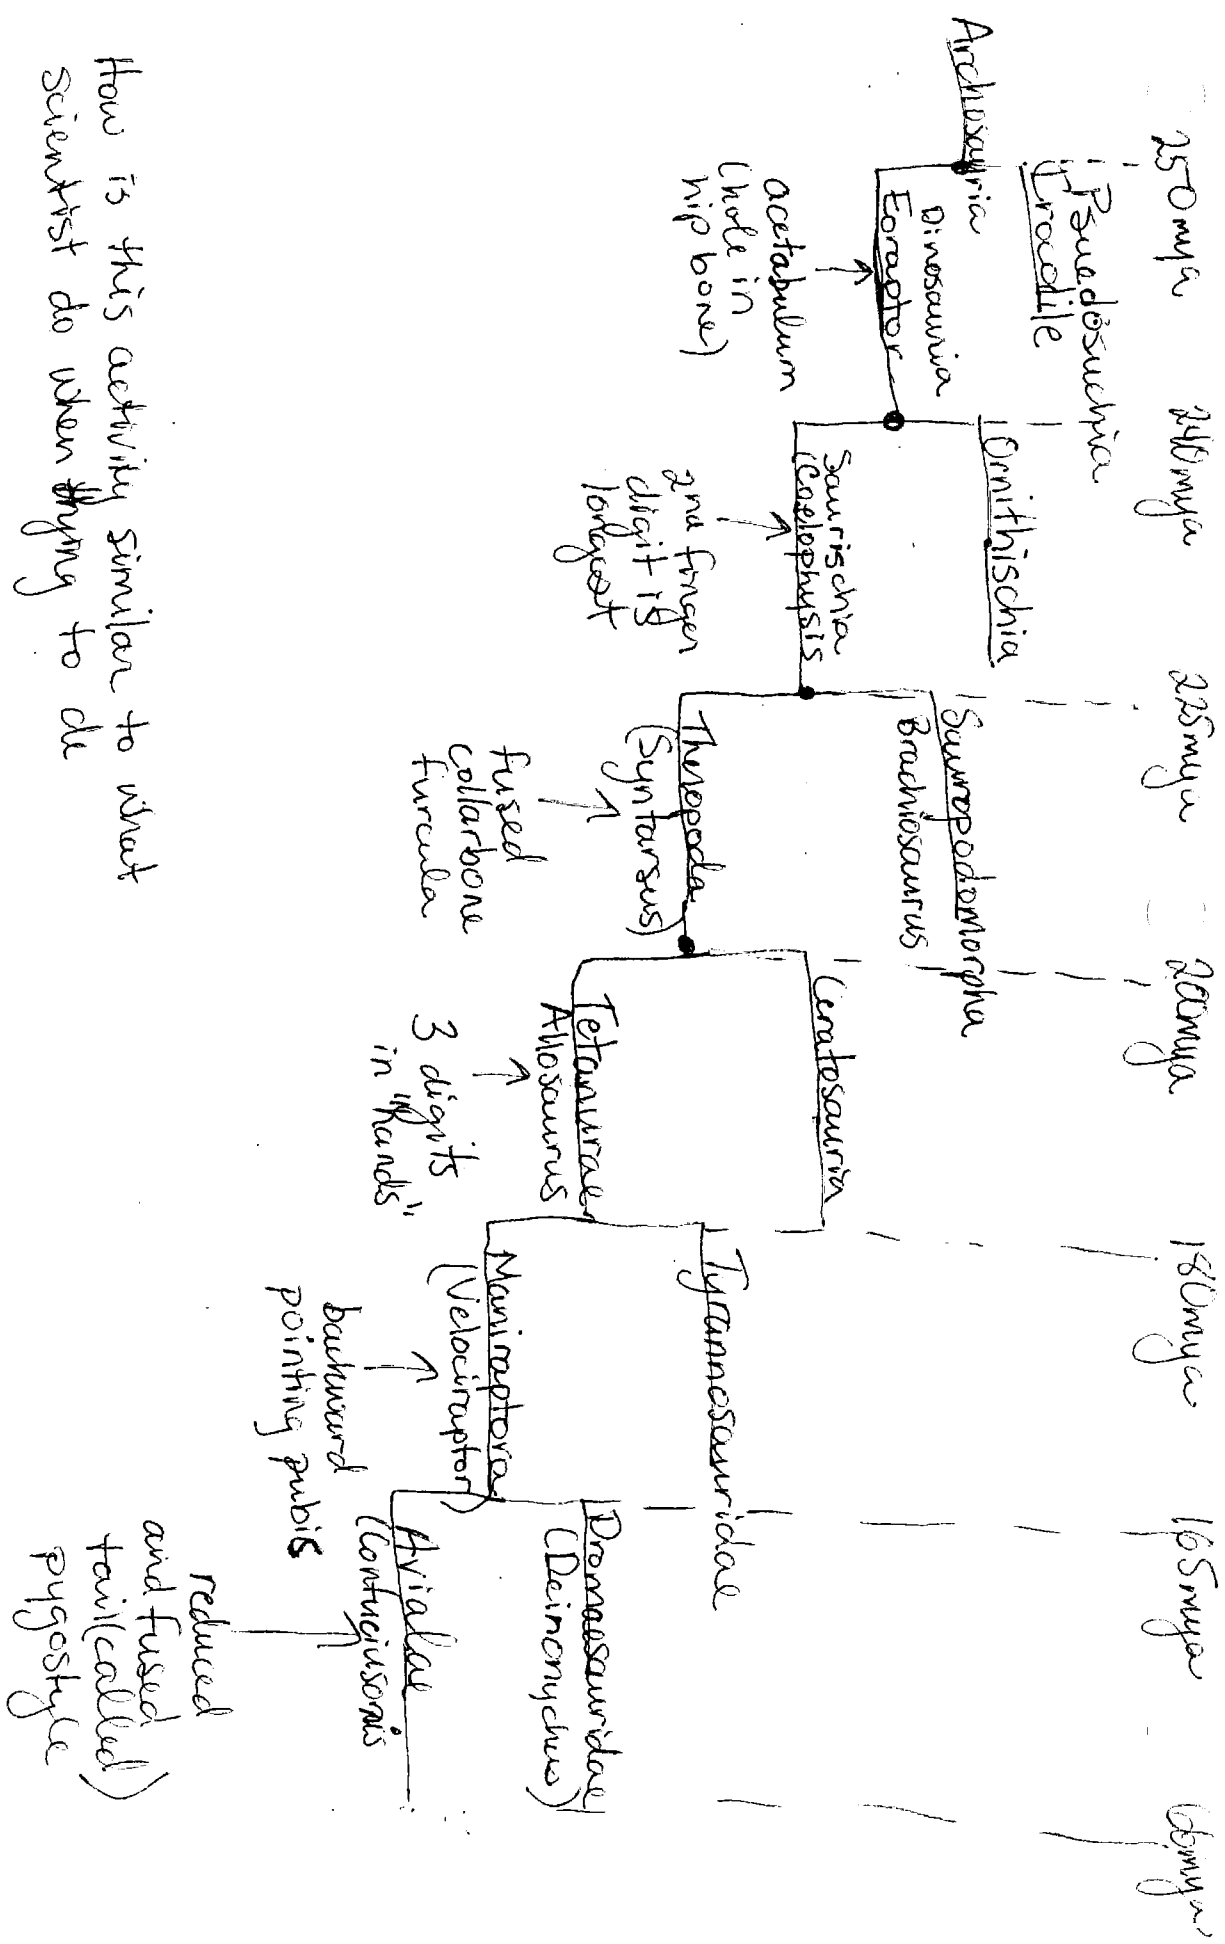 250mya 240mya 225mya 200mya 180mya 165mya 66mya
Psuedosuchia
Crocodile
Archosauria
Dinosauria
Eoraptor
acetabulum
(hole in
hip bone)
Ornithischia
Saurischia
(Coelophysis
2nd finger
digit is
longest
Sauropodomorpha
Brachiosaurus
Theropoda
(Syntarsus)
fused
collarbone
furcula
Ceratosauria
Tetanurae
Allosaurus
3 digits
in "hands"
Tyrannosauridae
Maniraptora
(Velociraptor)
backward
pointing pubis
Dromaesauridae
(Deinonychus)
Avialae
(Confuciusornis
reduced
and fused
tail(called)
pygostyle
How is this activity similar to what
scientist do when trying to de